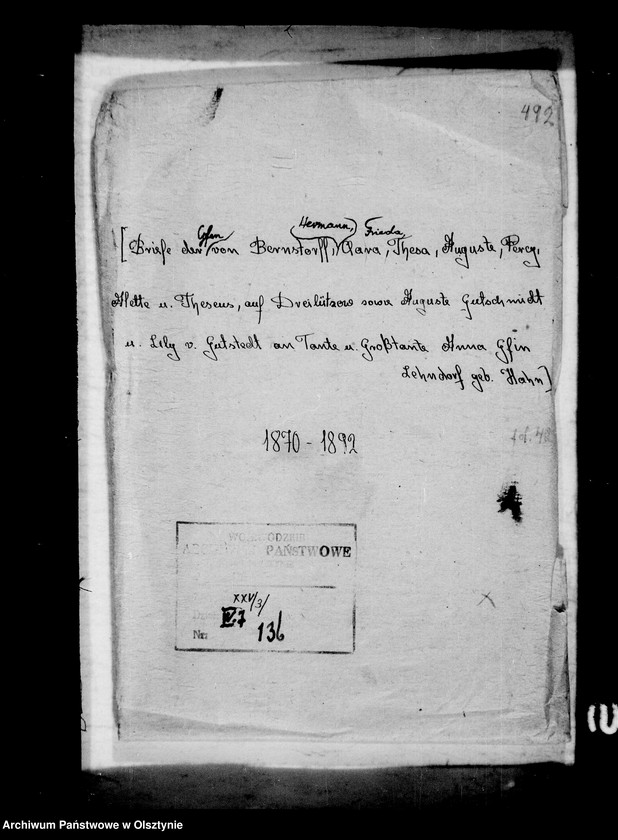 492
Gfin Hermann, Frieda,
[Briefe der von Bernstorff, Clara, Thesa, Auguste, Percy,
Alette u. Theseus, auf Dreilützow sowie Auguste Gutschmidt
u. Lily v. Gutstedt an Tante u. Großtante Anna Gfin
Lehndorf geb. Hahn]
1870-1892
WOJEWÓDZKIE
ARCHIWUM PAŃSTWOWE
XXV/3/
Nr: 136
Archiwum Państwowe w Olsztynie